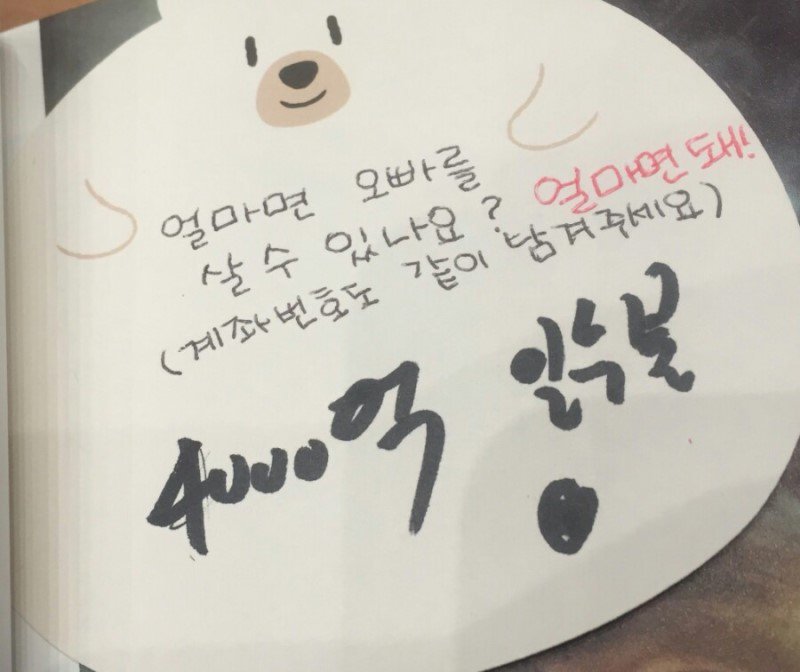 얼마면 오빠를
살 수 있나요? 얼마면 돼!
(계좌번호도 같이 남겨주세요)
4000억 일수불